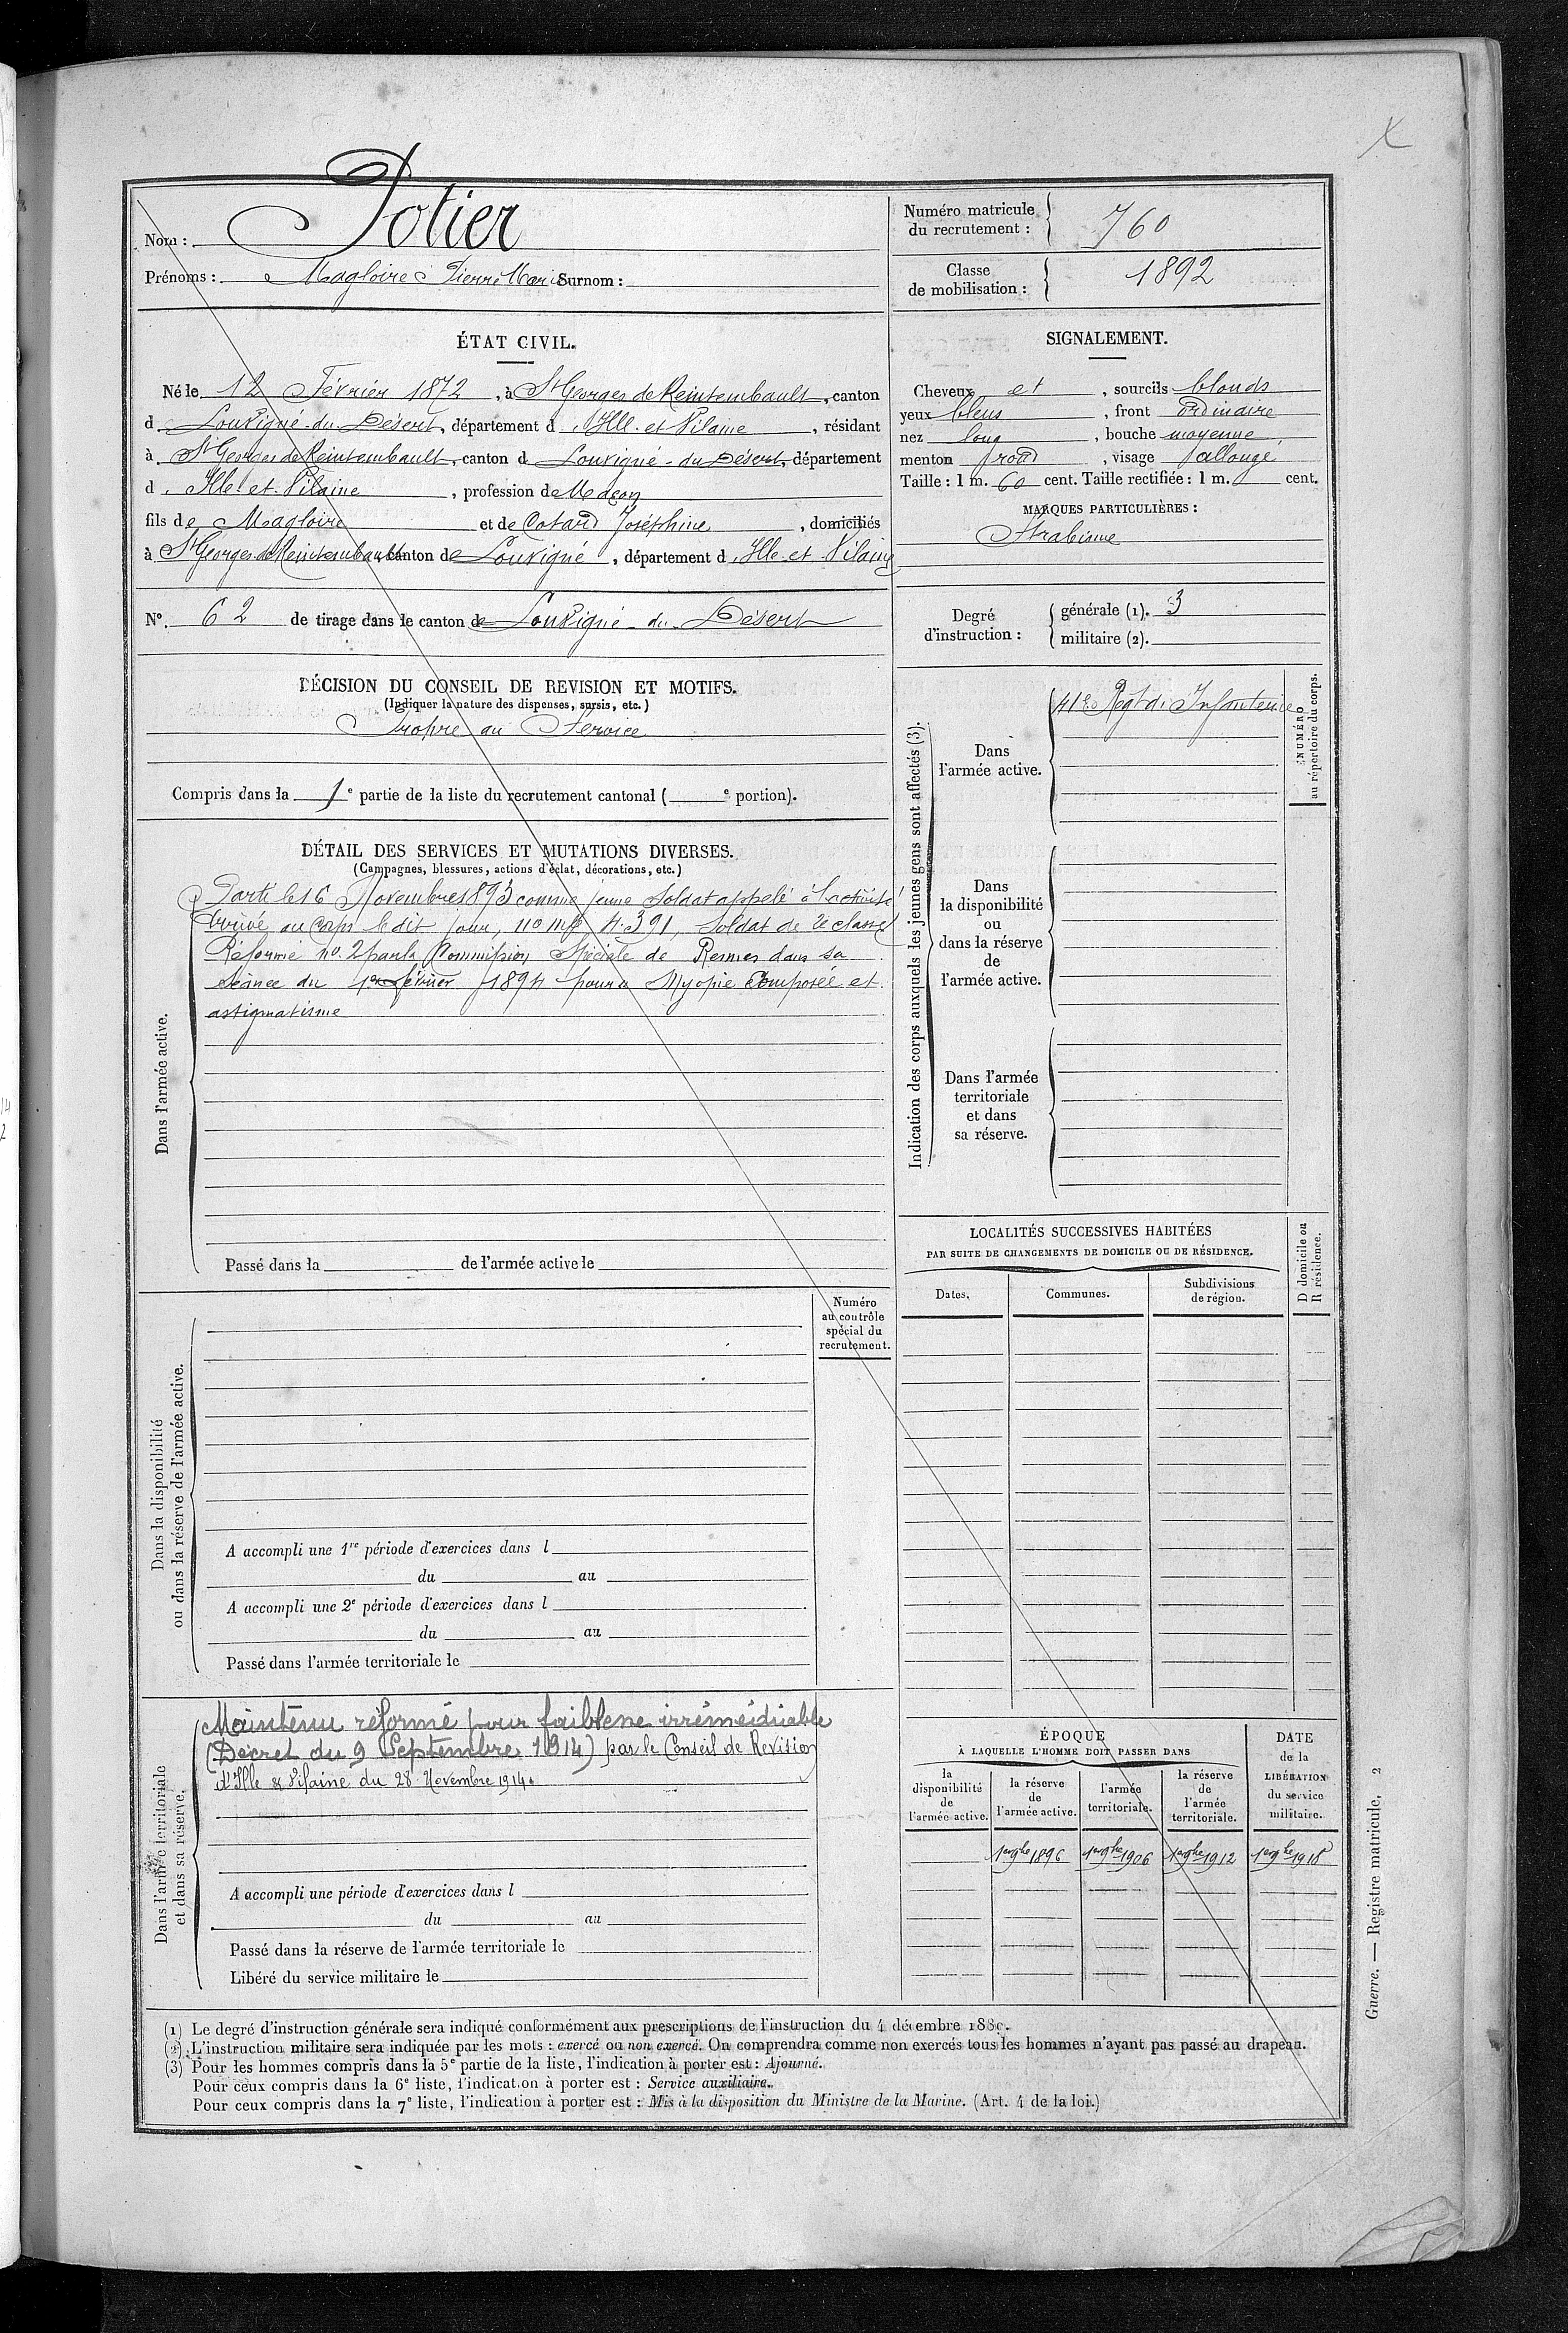 Nom : Potier
Prénoms : Magloire Pierre Marie Surnom :
Numéro matricule du recrutement : 760
Classe de mobilisation : 1892
ÉTAT CIVIL.
Né le 12 Février 1872, à St Georges de Reintembault, canton
d Louvigné-du-Désert, département d'Ille-et-Vilaine, résidant
à St Georges de Reintembault, canton d Louvigné-du-Désert, département
d'Ille-et-Vilaine, profession de Maçon
fils de Magloire et de Cotard Joséphine, domiciliés
à St Georges de Reintembault, canton de Louvigné, département d'Ille-et-Vilaine
N° 62 de tirage dans le canton de Louvigné-du-Désert
SIGNALEMENT.
Cheveux et, sourcils blonds
yeux bleus, front ordinaire
nez long, bouche moyenne,
menton rond, visage allongé
Taille : 1 m. 60 cent. Taille rectifiée : 1 m. cent.
MARQUES PARTICULIÈRES :
Strabisme
Degré d'instruction : générale (1). 3
militaire (2).
DÉCISION DU CONSEIL DE REVISION ET MOTIFS.
(Indiquer la nature des dispenses, sursis, etc.)
Propre au Service
Compris dans la 1e partie de la liste du recrutement cantonal ( e portion).
DÉTAIL DES SERVICES ET MUTATIONS DIVERSES.
(Campagnes, blessures, actions d'éclat, décorations, etc.)
Dans l'armée active.
Parti le 16 Novembre 1893 comme jeune soldat appelé à l'activité
Arrivé au corps le dit jour, no mle 4.391, soldat de 2e classe
Réformé no. 2 par la Commission Spéciale de Rennes dans sa
séance du 1er février 1894 pour Myopie Composée et
astigmatisme
Passé dans la de l'armée active le
Indication des corps auxquels les jeunes gens sont affectés (3).
NUMÉRO au répertoire du corps.
Dans l'armée active.
41e Regt d'Infanterie
Dans la disponibilité ou dans la réserve de l'armée active.
Dans l'armée territoriale et dans sa réserve.
LOCALITÉS SUCCESSIVES HABITÉES
PAR SUITE DE CHANGEMENTS DE DOMICILE OU DE RÉSIDENCE.
D domicile ou R résidence.
Dates. Communes. Subdivisions de région.
Dans la disponibilité ou dans la réserve de l'armée active.
Numéro au contrôle spécial du recrutement.
A accompli une 1re période d'exercices dans l
du au
A accompli une 2e période d'exercices dans l
du au
Passé dans l'armée territoriale le
Dans l'armée territoriale et dans sa réserve.
Maintenu réformé pour faiblesse irrémédiable
(Décret du 9 Septembre 1914) par le Conseil de Revision
d'Ille & Vilaine du 28 Novembre 1914.
A accompli une période d'exercices dans l
du au
Passé dans la réserve de l'armée territoriale le
Libéré du service militaire le
ÉPOQUE
À LAQUELLE L'HOMME DOIT PASSER DANS
la disponibilité de l'armée active.
la réserve de l'armée active.
l'armée territoriale.
la réserve de l'armée territoriale.
DATE de la LIBÉRATION du service militaire.
1er 9bre 1896 1er 9bre 1906 1er 9bre 1912 1er 9bre 1918
(1) Le degré d'instruction générale sera indiqué conformément aux prescriptions de l'instruction du 4 décembre 1889.
(2) L'instruction militaire sera indiquée par les mots : exercé ou non exercé. On comprendra comme non exercés tous les hommes n'ayant pas passé au drapeau.
(3) Pour les hommes compris dans la 5e partie de la liste, l'indication à porter est : Ajourné.
Pour ceux compris dans la 6e liste, l'indication à porter est : Service auxiliaire.
Pour ceux compris dans la 7e liste, l'indication à porter est : Mis à la disposition du Ministre de la Marine. (Art. 4 de la loi.)
Guerre. — Registre matricule, 2